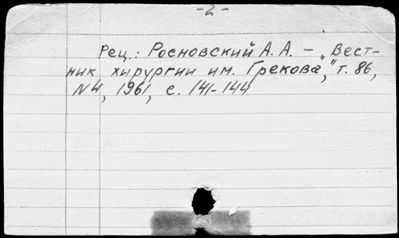 -2-
Рец.: Росновский А.А. – „Вест-
ник хирургии им. Грекова", т. 86,
N4, 1961, с. 141-144